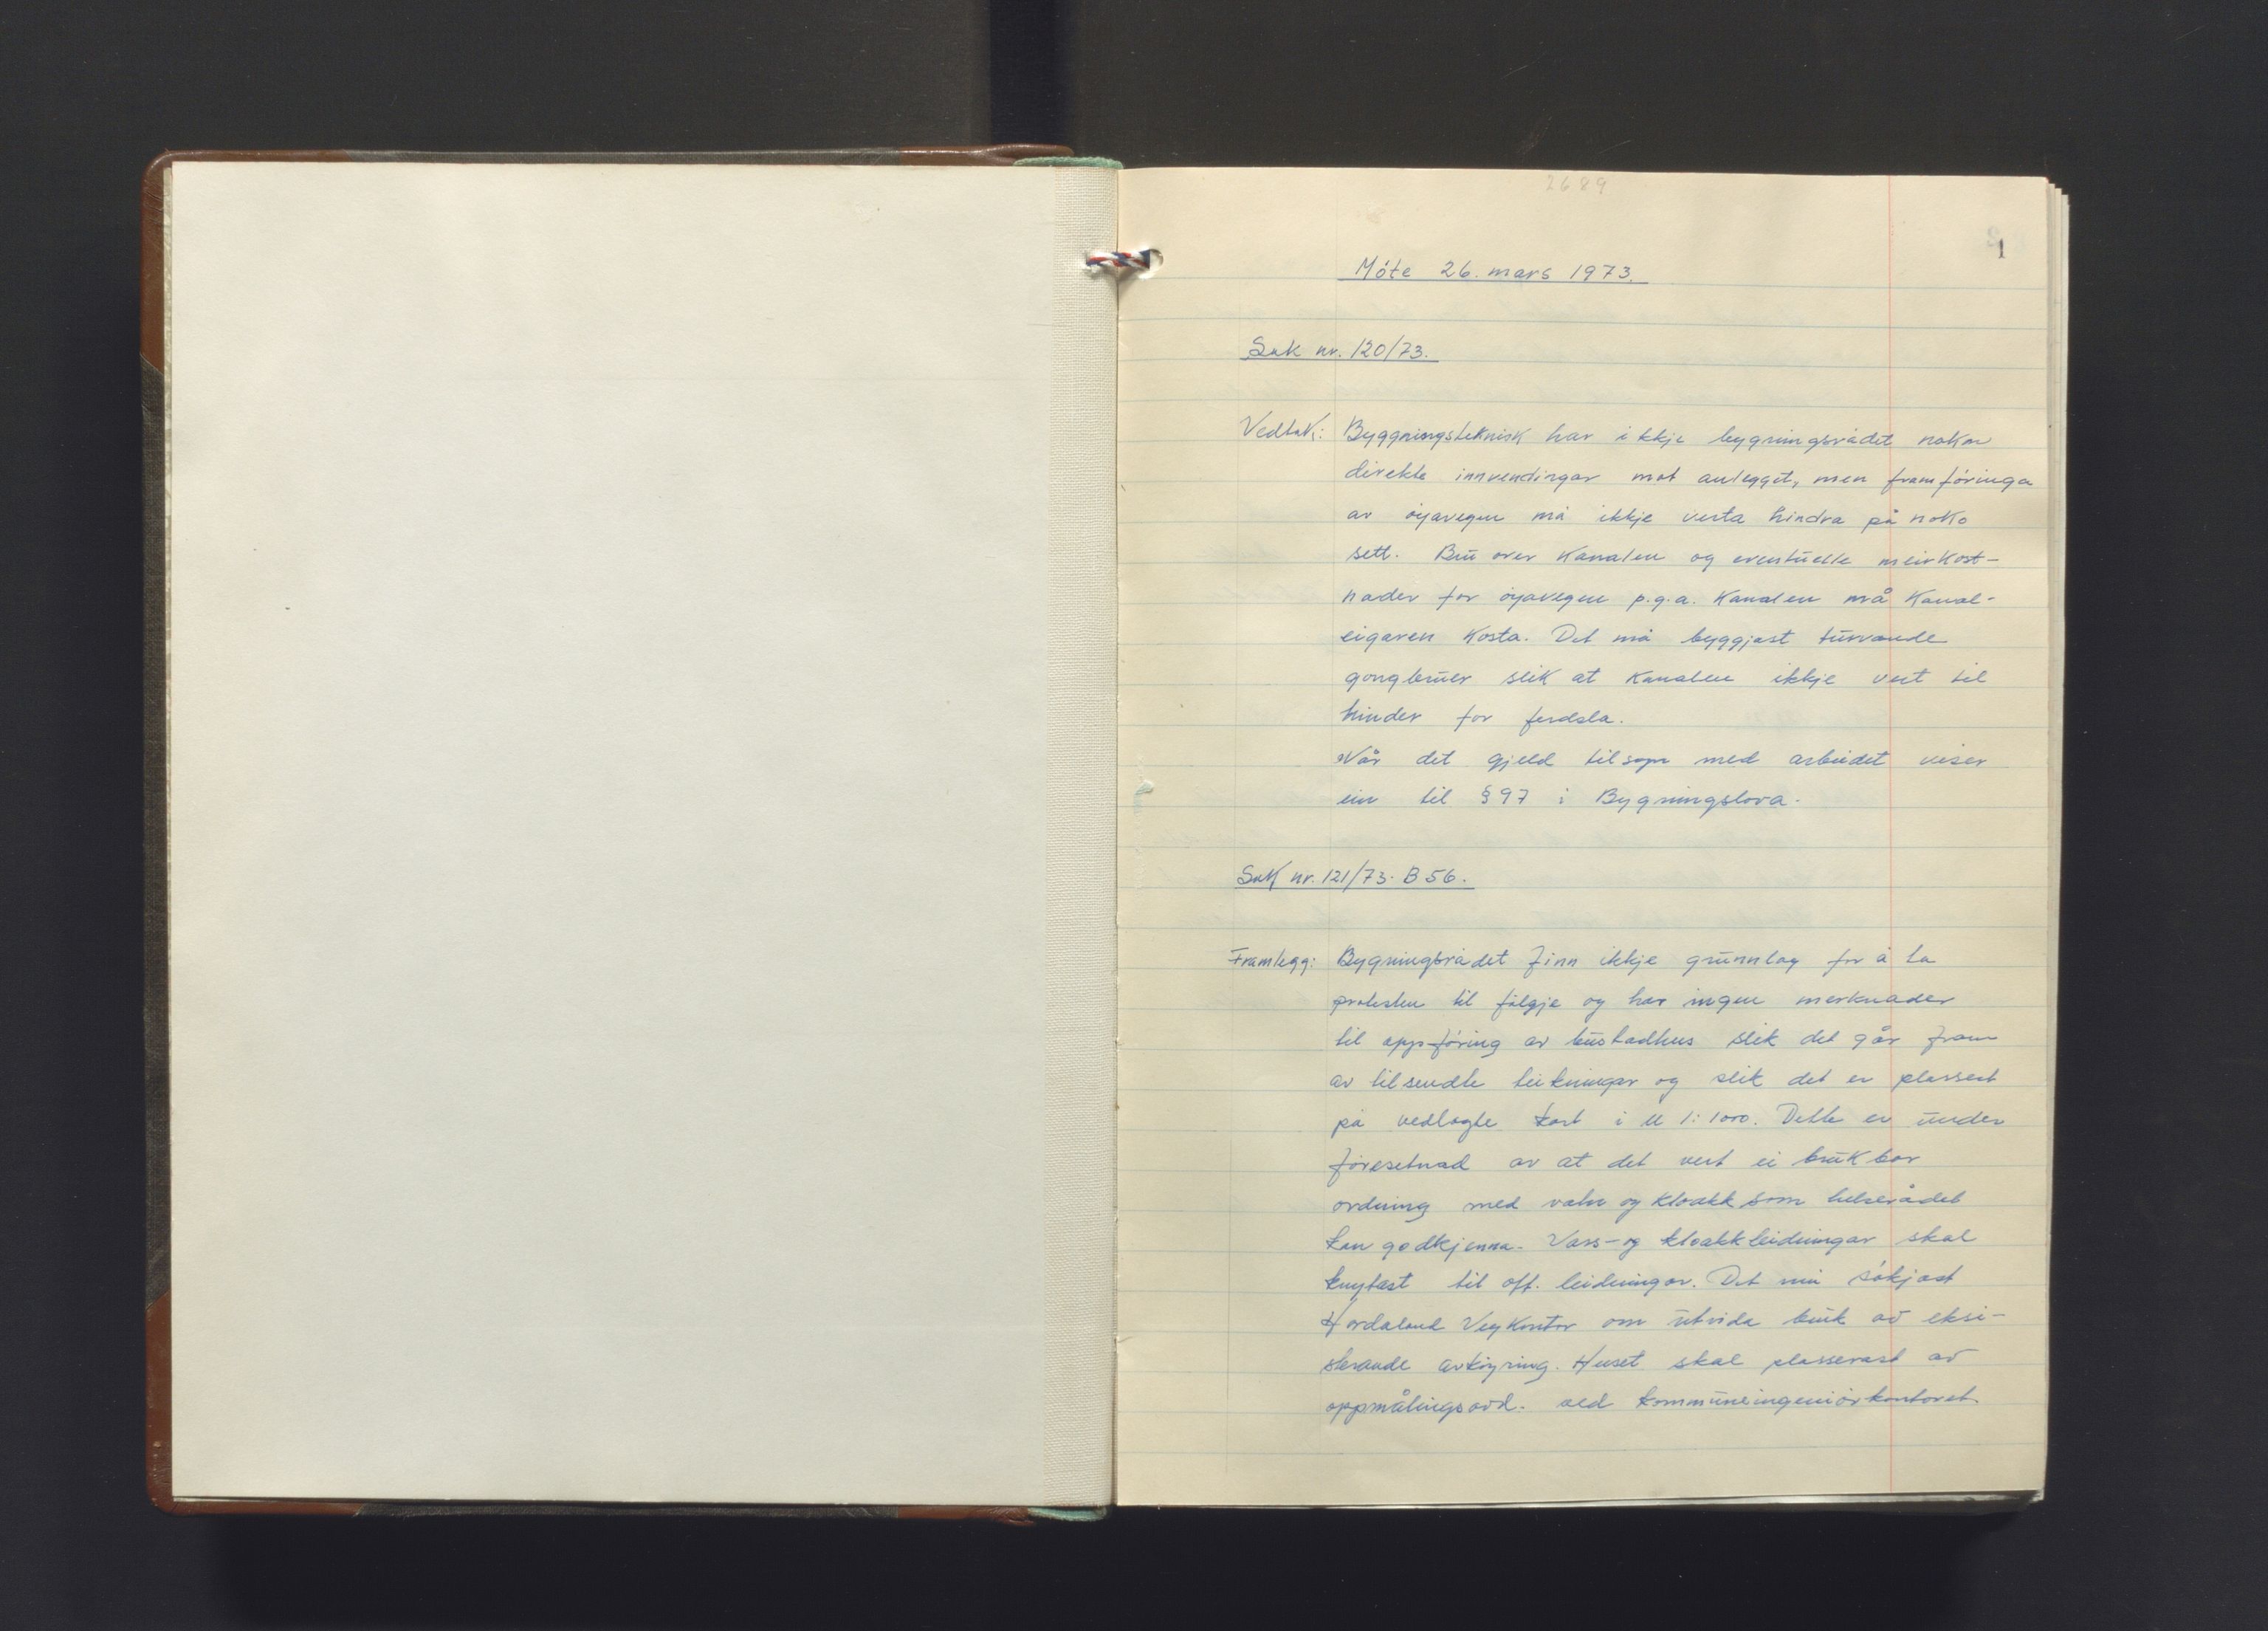 2689
1
Móte 26. mars 1973.
Sak nr. 120/73.
Vedtak: Byggningsteknisk har ikkje bygningsrådet nokon
direkte innvendingar mot anlegget, men framføringa
av øyavegen må ikkje verta hindra på noko
sett. Bru over kanalen og eventuelle meirkost-
nader for øyavegen p.g.a. kanalen må kanal-
eigaren kosta. Det må byggjast turvande
gongbruer slik at kanalen ikkje vert til
hinder for ferdsla.
Når det gjeld tilsyn med arbeidet viser
ein til § 97 i Bygningslova.
Sak nr. 121/73. B 56.
Framlegg: Bygningsrådet finn ikkje grunnlag for å ta
protesten til følgje og har ingen merknader
til oppføring av bustadhus slik det går fram
av tilsendte teikningar og slik det er plassert
på vedlagte kart i M 1:1000. Dette er under
føresetnad av at det vert ei brukbar
ordning med vatn og kloakk som helserådet
kan godkjenna. Vass- og kloakkleidningar skal
knytast til off. leidningar. Det må søkjast
Hordaland Vegkontor om utvida bruk av eksi-
sterande avkøyring. Huset skal plasserast av
oppmålingsavd. ved kommuneingeniørkontoret.